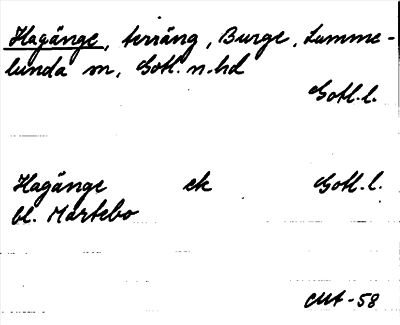 Hagänge, terräng, Burge, Lumme-
lunda sn, Gotl. n. hd
Gotl. l.
Hagänge ek Gotl. l.
bl. Martebo
CMt-58